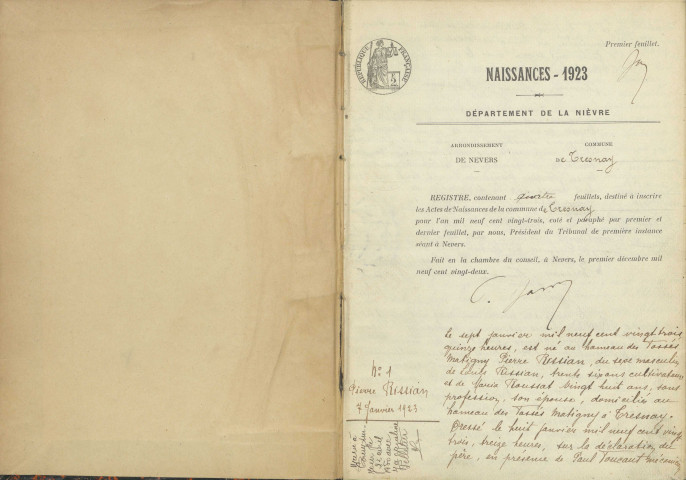 RÉPUBLIQUE FRANÇAISE
Premier feuillet.
NAISSANCES - 1923
DÉPARTEMENT DE LA NIÈVRE
ARRONDISSEMENT
DE NEVERS
COMMUNE
DE Tresnay
REGISTRE, contenant quatre feuillets, destiné à inscrire
les Actes de Naissances de la commune de Tresnay
pour l'an mil neuf cent vingt-trois, coté et paraphé par premier et
dernier feuillet, par nous, Président du Tribunal de première instance
séant à Nevers.
Fait en la chambre du conseil, à Nevers, le premier décembre mil
neuf cent vingt-deux.
N° 1
Pierre Rossian
7 Janvier 1923
Le sept janvier mil neuf cent vingt trois
quinze heures, est né au hameau des Tassés
Matigny Pierre Rossian, du sexe masculin
de Louis Rossian, trente six ans cultivateur
et de Maria Roussat vingt huit ans, sans
profession, son épouse, domiciliés au
hameau des Tassés Matigny à Tresnay.
Dressé le huit janvier mil neuf cent vingt
trois, treize heures, sur la déclaration du
père, en présence de Paul Toucant